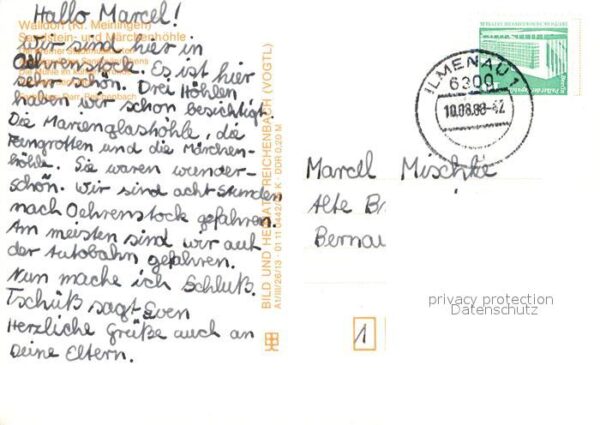 Hallo Marcel!
Walldorf (Kr. Meiningen)
Sandstein- und Märchenhöhle
Wir sind hier in
Oehrenstock. Es ist hier
sehr schön. Drei Höhlen
haben wir schon besichtigt.
Die Marienglashöhle, die
Feengrotten und die Märchen-
höhle. Sie waren wunder-
schön. Wir sind acht Stunden
nach Oehrenstock gefahren.
Am meisten sind wir auf
der Autobahn gefahren.
Nun mache ich Schluß.
Tschüß sagt Sven
Herzliche Grüße auch an
Deine Eltern.
BILD UND HEIMAT REICHENBACH (VOGTL)
DDR 0,20 M
ILMENAU 1
6300
Marcel Mischke
Alte
Bernau
1
privacy protection
Datenschutz